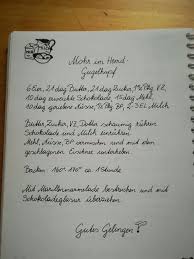 Mohr im Hemd
Gugelhupf
6 Eier, 21 dag Butter, 21 dag Zucker, 1 Pkg VZ,
10 dag erweichte Schokolade, 15 dag Mehl,
10 dag geriebene Nüsse, ½ Pkg BP, 2-3 EL Milch
Butter, Zucker, VZ, Dotter schaumig rühren
Schokolade und Milch einrühren
Mehl, Nüsse, BP vermischen und mit dem
geschlagenen Eischnee unterheben.
Backen 160°-170° ca. 1 Stunde
Mit Marillenmarmelade bestreichen und mit
Schokoladeglasur überziehen
Gutes Gelingen!